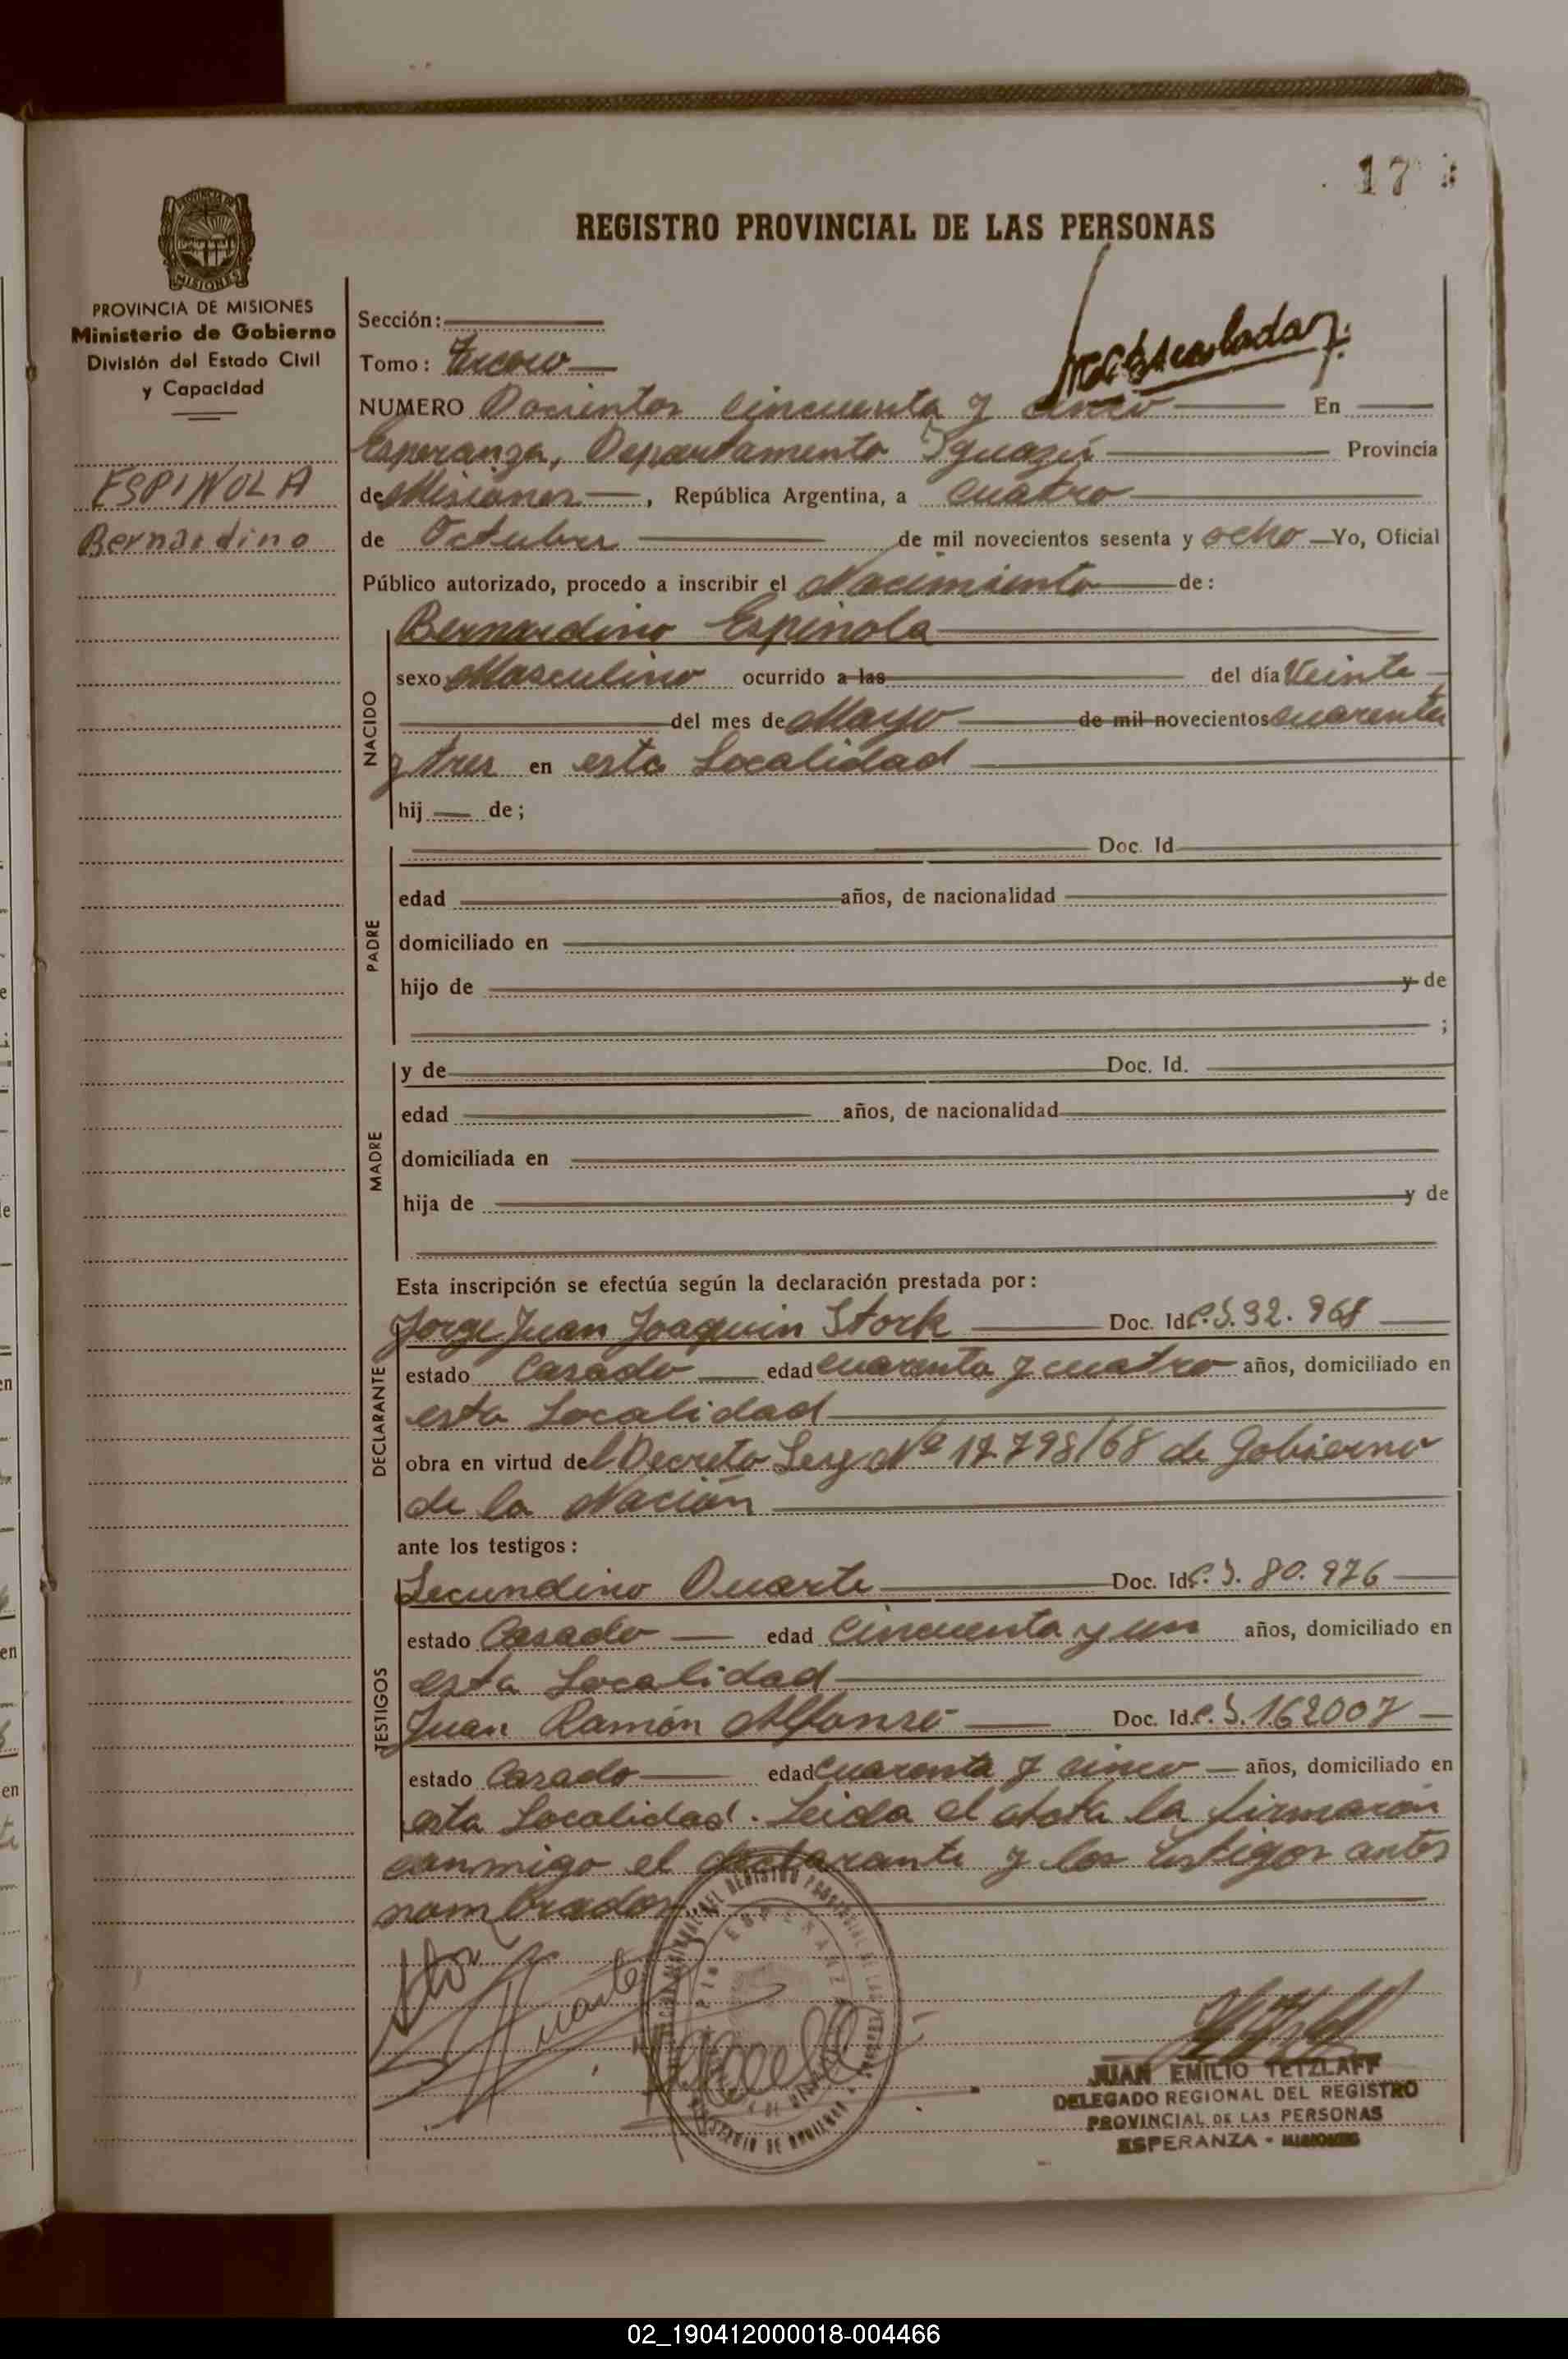 17
REGISTRO PROVINCIAL DE LAS PERSONAS
PROVINCIA DE MISIONES
Ministerio de Gobierno
División del Estado Civil
y Capacidad
ESPINOLA
Bernardino
Sección:
Tomo: Tercero
NUMERO Docientos cincuenta y cinco En
Esperanza, Departamento Iguazú Provincia
de Misiones, República Argentina, a cuatro
de Octubre de mil novecientos sesenta y ocho Yo, Oficial
Público autorizado, procedo a inscribir el Nacimiento de:
NACIDO
Bernardino Espinola
sexo Masculino ocurrido a las del día Veinte
del mes de Mayo de mil novecientos cuarenta
y tres en esta Localidad
hij de;
PADRE
Doc. Id
edad años, de nacionalidad
domiciliado en
hijo de y de
;
MADRE
y de Doc. Id.
edad años, de nacionalidad
domiciliada en
hija de y de
Esta inscripción se efectúa según la declaración prestada por:
DECLARANTE
Jorge Juan Joaquin Stork Doc. Id C.I. 92.968
estado Casado edad cuarenta y cuatro años, domiciliado en
esta Localidad
obra en virtud del Decreto Ley Nº 17.798/68 de Gobierno
de la Nación
ante los testigos:
TESTIGOS
Secundino Duarte Doc. Id C.I. 80.976
estado Casado edad cincuenta y un años, domiciliado en
esta Localidad
Juan Ramón Alfonso Doc. Id. C.I. 162007
estado Casado edad cuarenta y cinco años, domiciliado en
esta Localidad. Leida el Acta la firmaron
conmigo el declarante y los testigos antes
nombrados
Duarte
JUAN EMILIO TETZLAFF
DELEGADO REGIONAL DEL REGISTRO
PROVINCIAL DE LAS PERSONAS
ESPERANZA - MISIONES
02_190412000018-004466